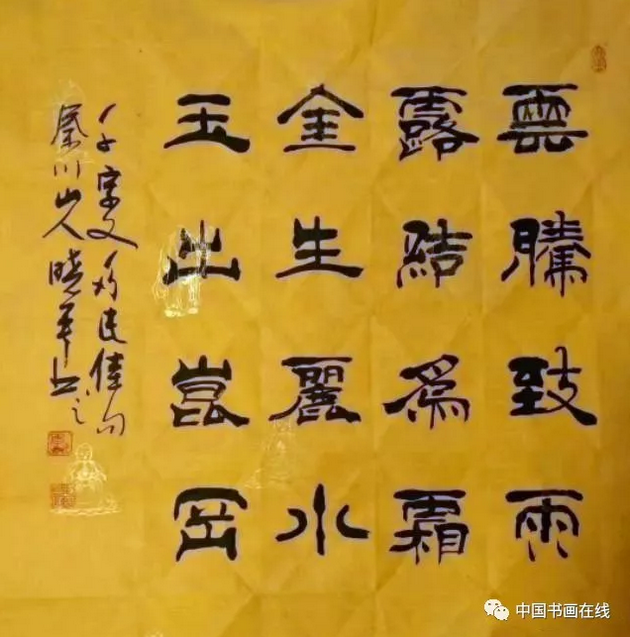 雲騰致雨
露結爲霜
金生麗水
玉出崑岡
千字文佳句
秦川山人曉
中国书画在线